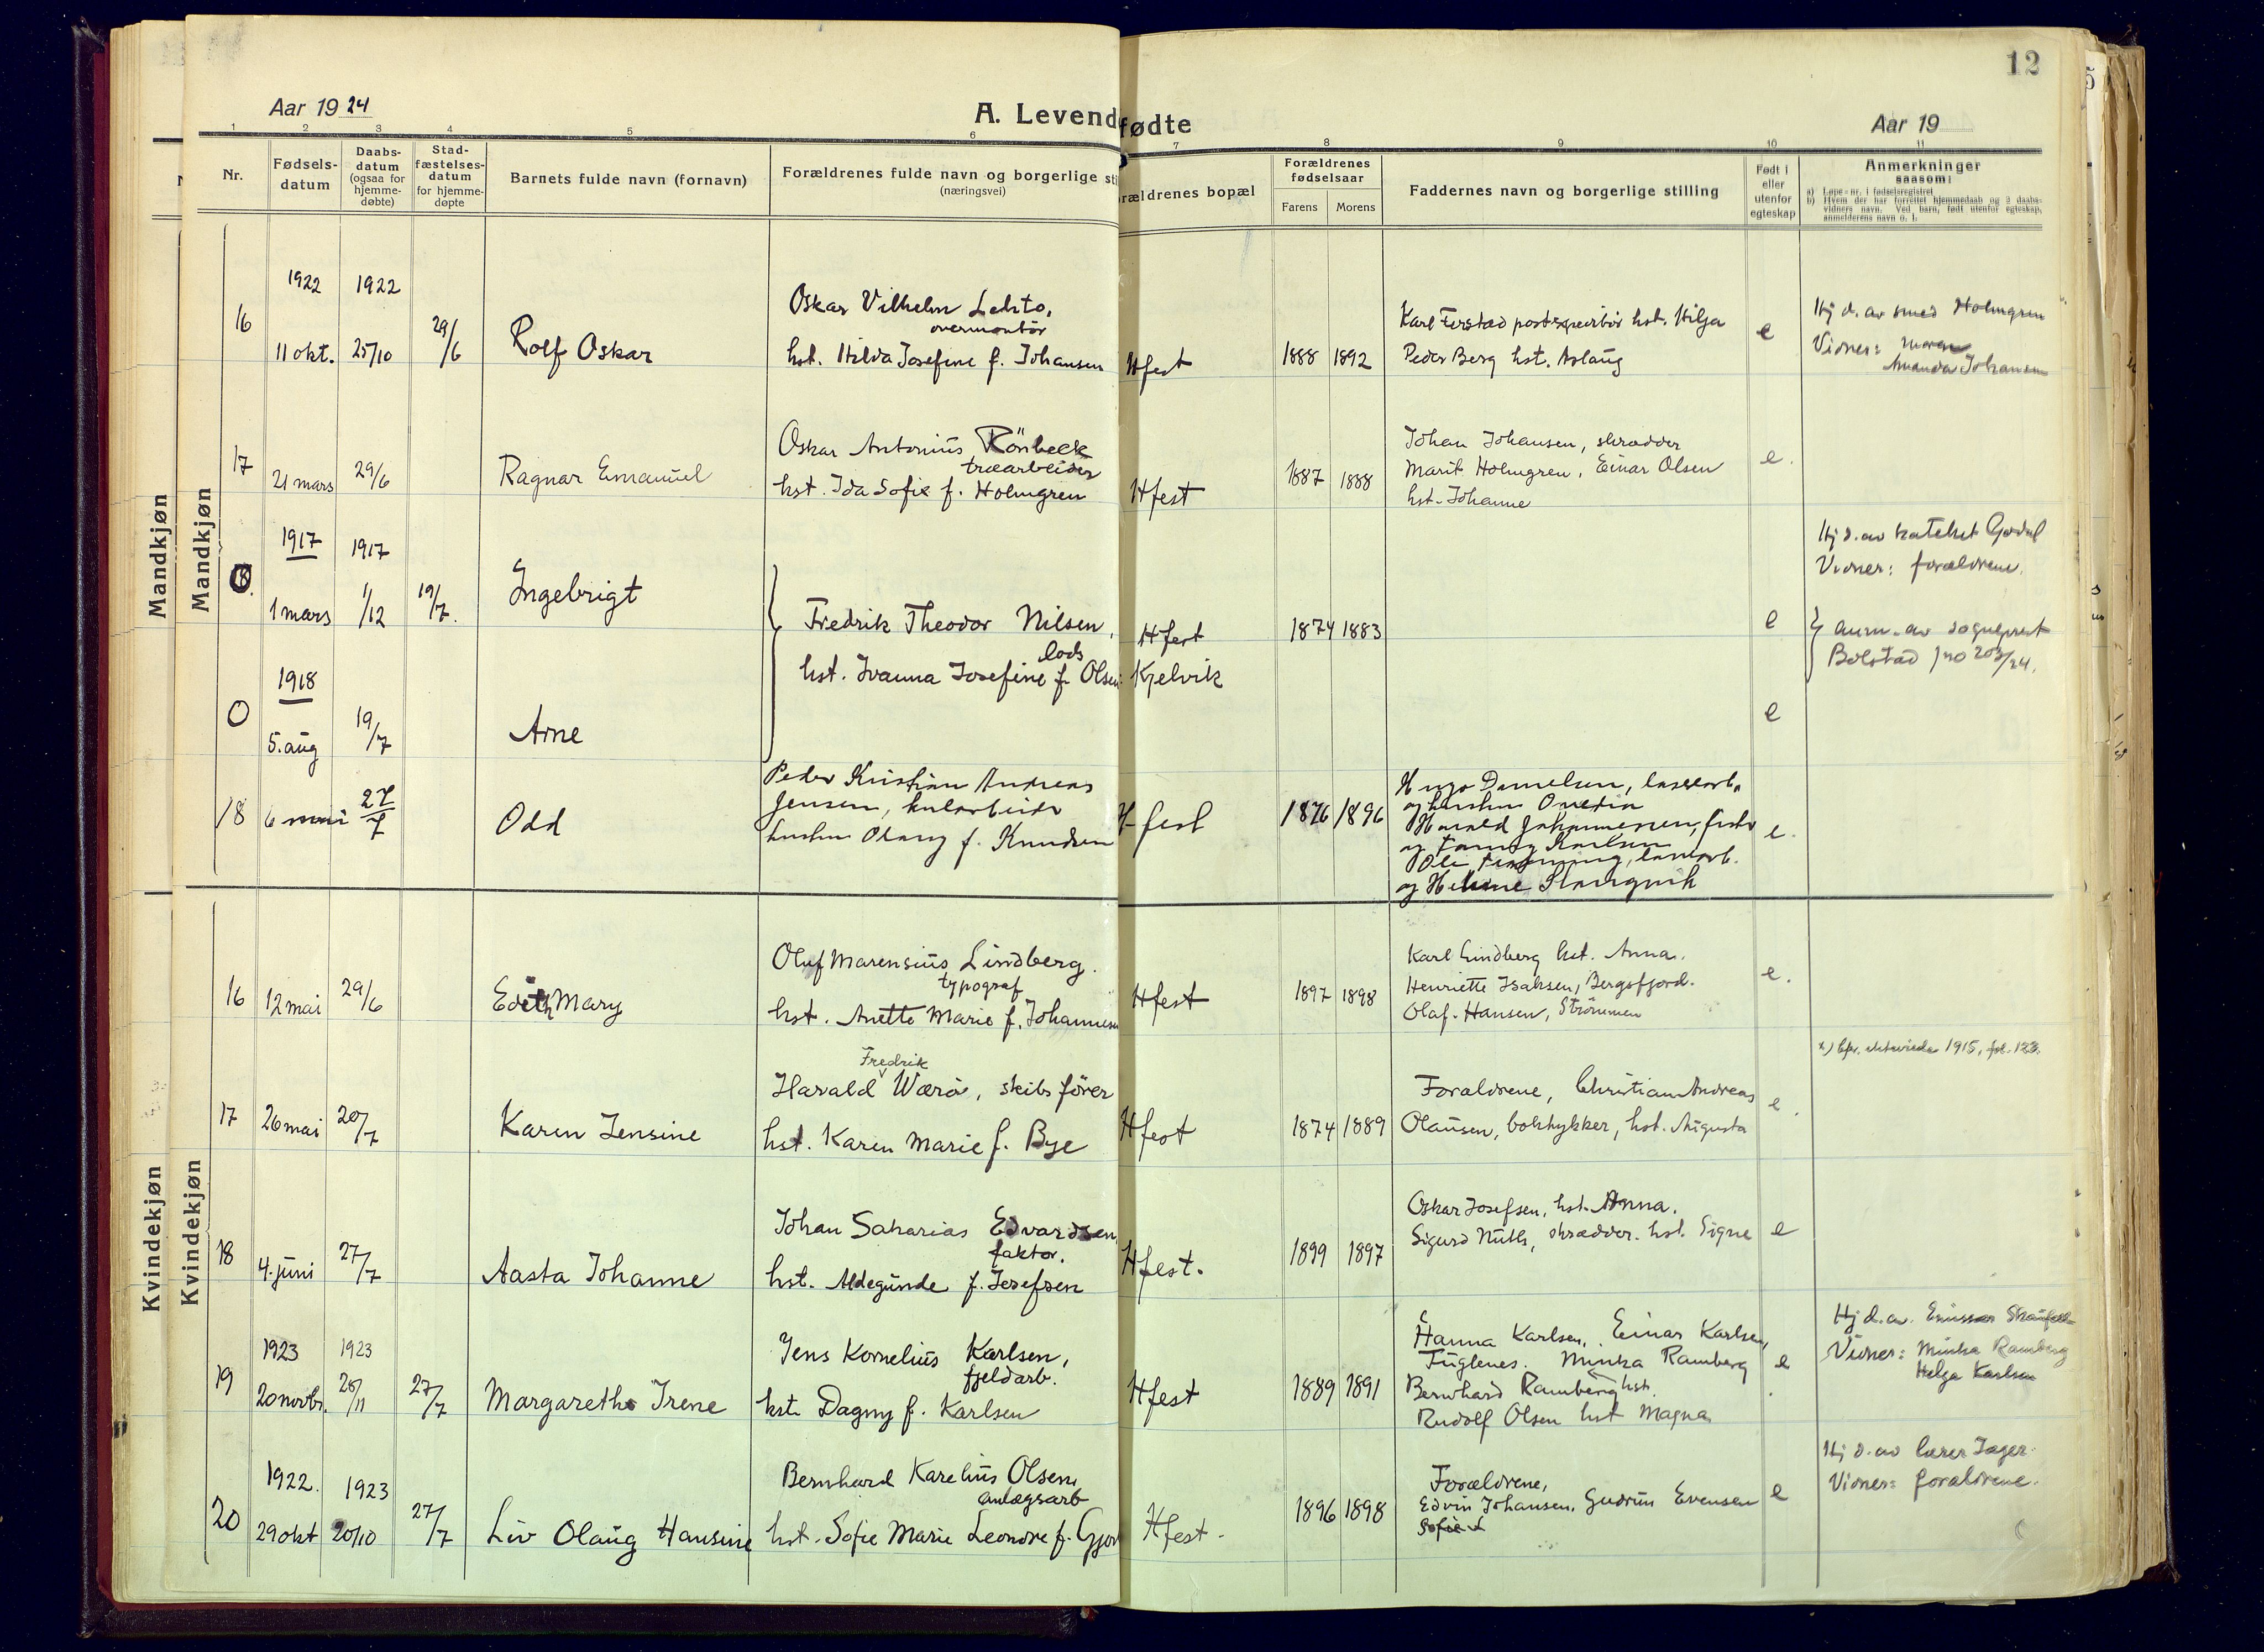 12
Aar 1924
A. Levend
fødte
Aar 19
1 2 3 4 5 6 7 8 9 10 11
Nr.
Fødsels-
datum
Daabs-
datum
(ogsaa for
hjemme-
døbte)
Stad-
fæstelses-
datum
for hjemme-
døpte
Barnets fulde navn (fornavn)
Forældrenes fulde navn og borgerlige sti
(næringsvei)
rældrenes bopæl
Forældrenes
fødselsaar
Farens Morens
Faddernes navn og borgerlige stilling
Født i
eller
utenfor
egteskap
Anmerkninger
saasom:
a) Løpe-nr. i fødselsregistret
b) Hvem der har forrettet hjemmedaab og 2 daabs-
vidners navn. Ved barn, født utenfor egteskap,
anmelderens navn o. l.
Mandkjøn
Mandkjøn
16
1922
11 okt.
1922
25/10
29/6
Rolf Oskar
Oskar Vilhelm Lehto,
overmontör
hst. Hilda Josefine f. Johansen
Hfest
1888 1892
Karl Ferstad hst. Hilja
Peder Berg hst. Aslaug
e
Hj d. av smed Holmgren
Vidner: moren
Amanda Johansen
17
21 mars
29/6
Ragnar Emanuel
Oskar Antonius Rönbeck
træarbeider
hst. Ida Sofie f. Holmgren
Hfest
1887 1888
Johan Johansen, skrædder
Marit Holmgren, Einar Olsen
hst. Johanne
e.
1917
1 mars
1917
1/12
19/7.
Ingebrigt
Fredrik Theodor Nilsen,
lods
hst. Ivanna Josefine f. Olsen
Hfest
Kjelvik
1874 1883
e
Hj d. av kateket Godal
Vidner: forældrene.
anm. av sogneprest
Bolstad
0
1918
5. aug
19/7
Arne
e
18
6 mai
27/7
Odd
Peder Kristian Andreas
Jensen, kularbeider
hustru Olaug f. Knudsen
H-fest
1876 1896
Hugo Danielsen, lossearb.
og hustru
Harald Johannesen, fisker
og Fanny Karlsen
Ole
og Helene
e.
Kvindekjøn
Kvindekjøn
16
12 mai
29/6
Edith Mary
Oluf Marensius Lindberg.
typograf
hst. Anette Marie f. Johannesen
Hfest
1897 1898
Karl Lindberg hst. Anna.
Henriette Isaksen, Bergsfjord.
Olaf Hansen, Strömmen
e.
17
26 mai
20/7
Karen Jensine
Fredrik
Harald Værö, skibsförer
hst. Karen Marie f. Bye
Hfest
1874 1889
Forældrene, Christian Andreas
Olausen, boktykker, hst. Augusta
e.
x) Cfr. 1915, fol. 123.
18
4. juni
27/7
Aasta Johanne
Johan Sakarias Edvardsen,
faktor.
hst. Aldegunde f. Josefsen
Hfest.
1899 1897
Oskar Josefsen, hst. Anna.
Sigurd Nuth, skrædder. hst. Signe
e
19
1923
20 novbr.
1923
25/11
27/7
Margarethe Irene
Jens Kornelius Karlsen,
fjeldarb.
hst. Dagny f. Karlsen
Hfest
1889 1891
Hanna Karlsen, Einar Karlsen,
Fuglenes. Minka Ramberg
Bernhard Ramberg hst.
Rudolf Olsen hst Magna
e
Hj d. av.
Vidner: Minka Ramberg
Helga Karlsen
20
1922.
29 okt
1923
20/10
27/7
Liv Olaug Hansine
Bernhard Karelius Olsen,
anlægsarb
hst. Sofie Marie Leonore f. Gjør
Hfest.
1896 1898
Forældrene,
Edvin Johansen, Gudrun Evensen
e
Hj d. av lærer Jager.
Vidner: forældrene.